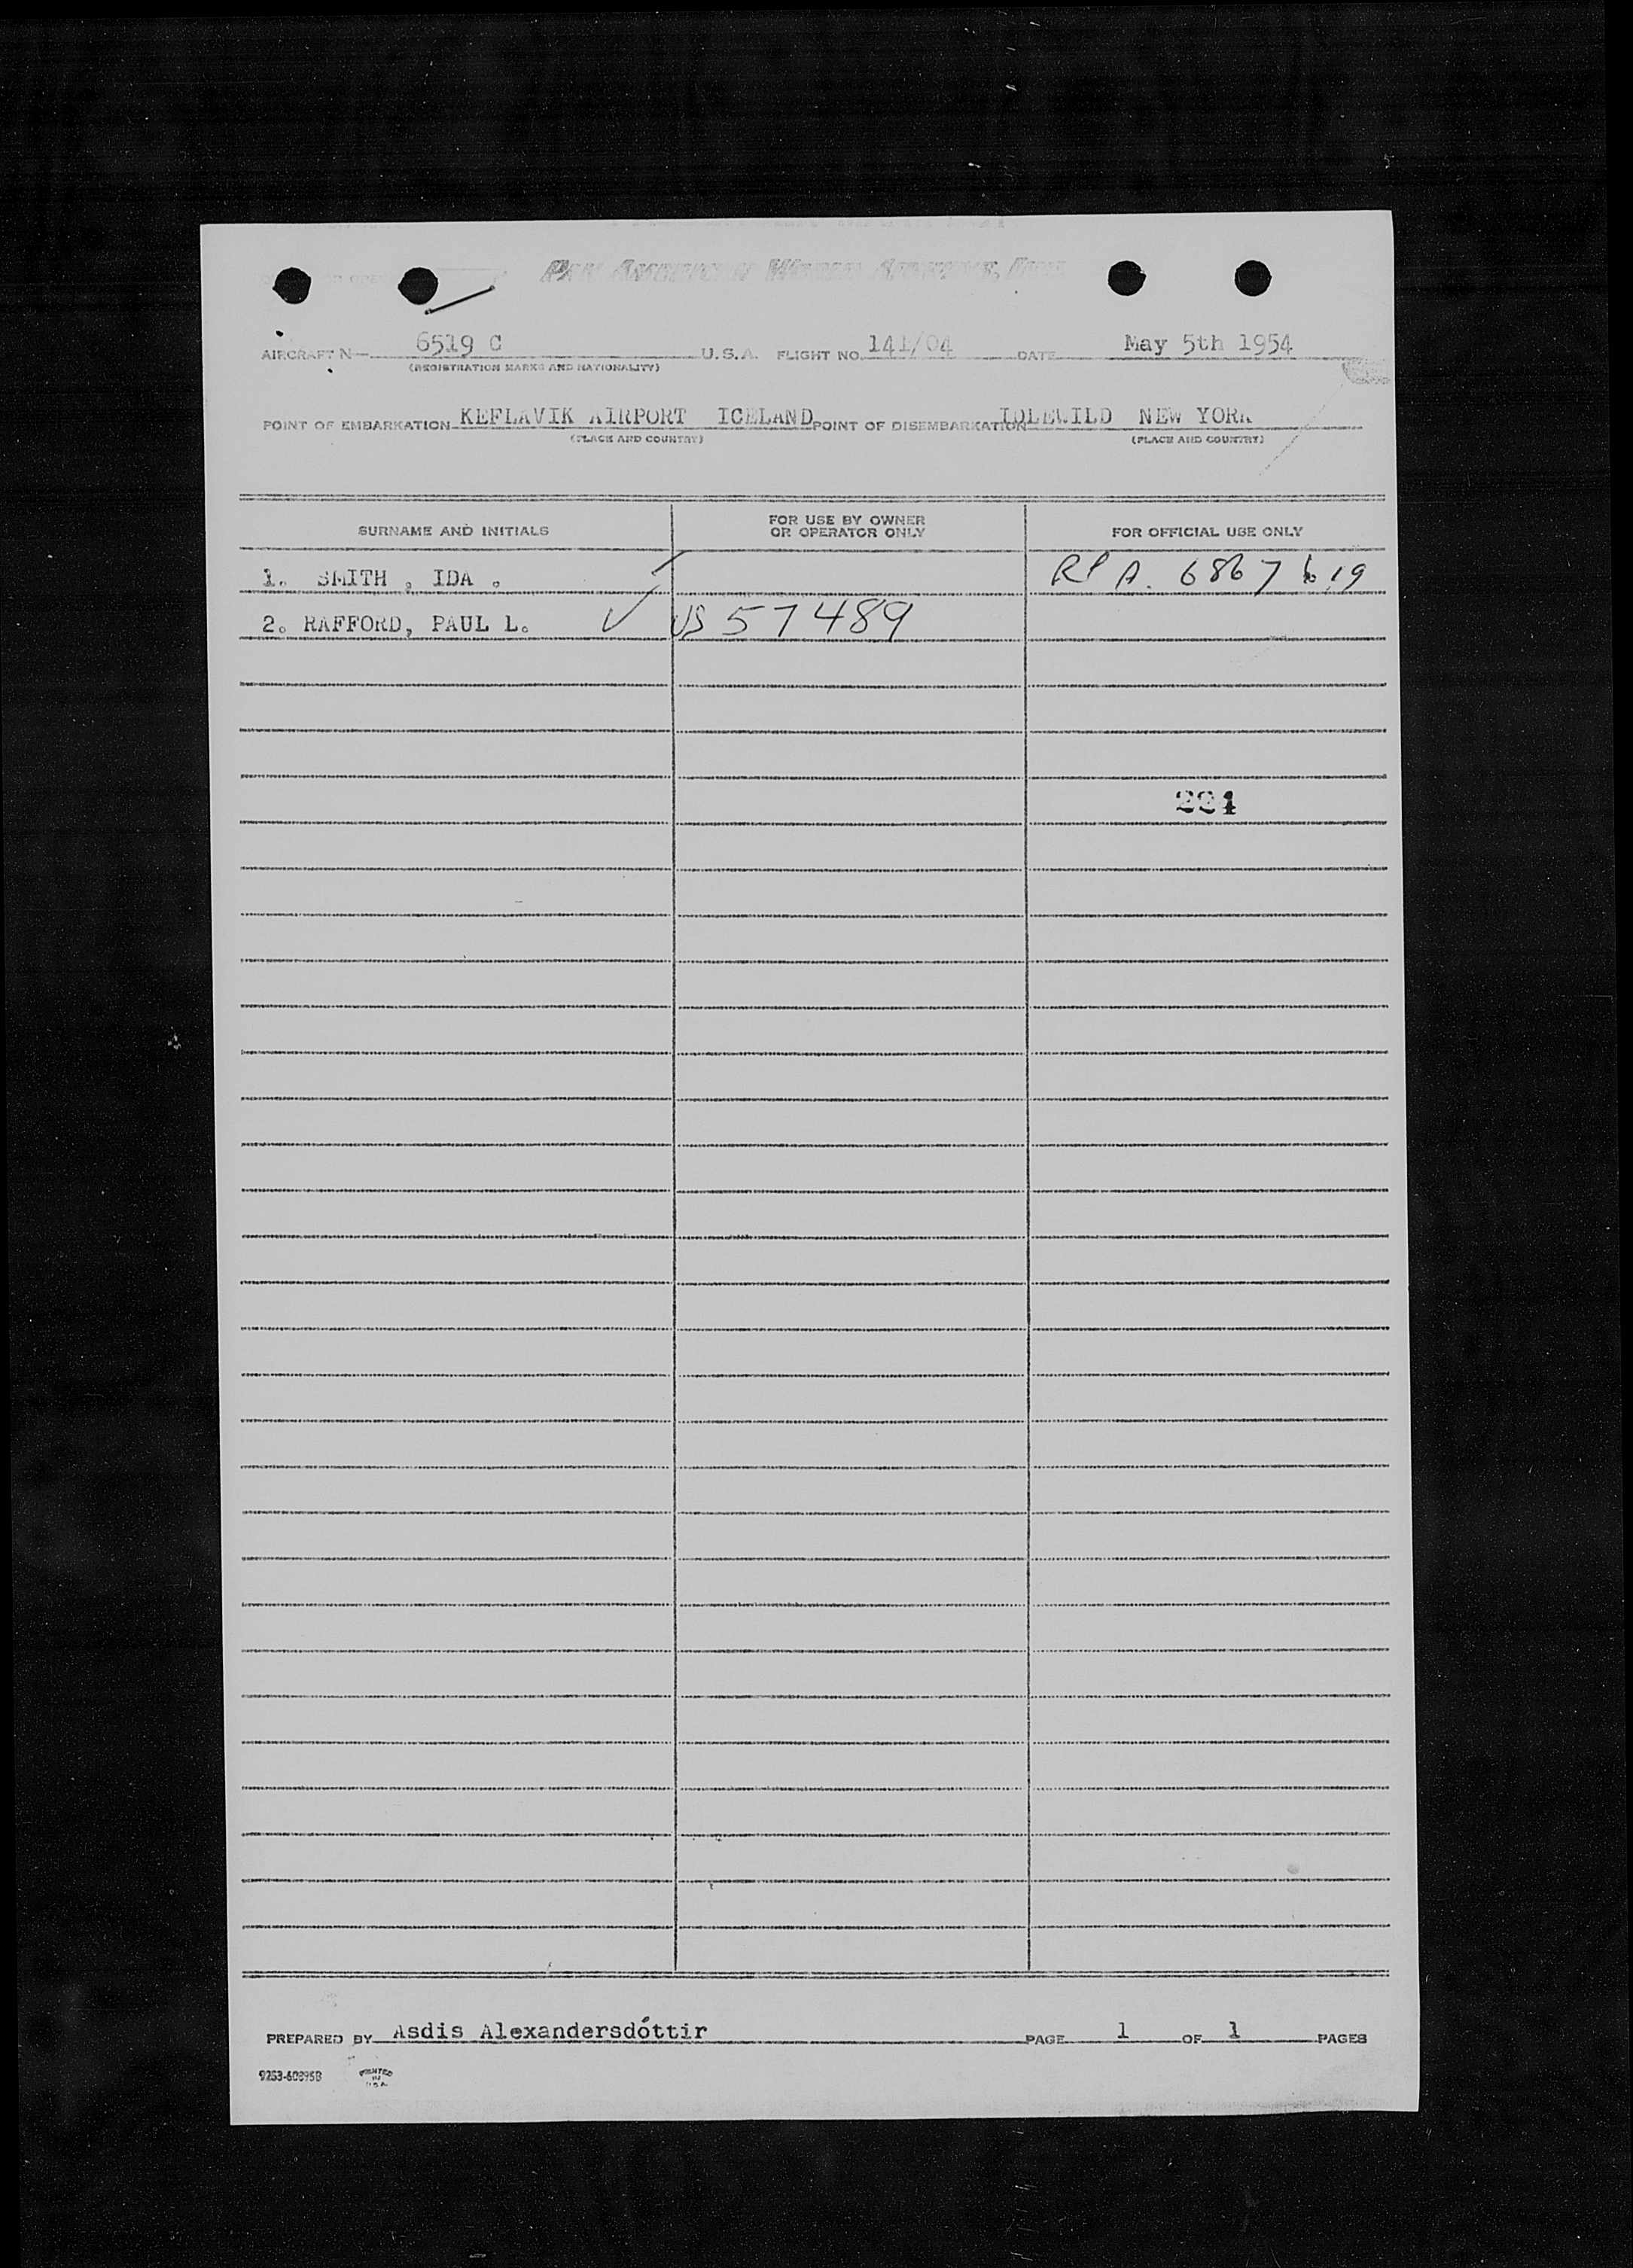 PAN AMERICAN WORLD AIRWAYS, INC.
AIRCRAFT N— 6519 C U.S.A. FLIGHT NO. 141/04 DATE May 5th 1954
(REGISTRATION MARKS AND NATIONALITY)
POINT OF EMBARKATION KEFLAVIK AIRPORT ICELAND POINT OF DISEMBARKATION IDLEWILD NEW YORK
(PLACE AND COUNTRY) (PLACE AND COUNTRY)
SURNAME AND INITIALS FOR USE BY OWNER OR OPERATOR ONLY FOR OFFICIAL USE ONLY
1. SMITH , IDA . RP A. 6867 619
2. RAFFORD, PAUL L. ✓ US 57489
221
PREPARED BY Asdis Alexandersdóttir PAGE 1 OF 1 PAGES
9253-60895B PRINTED IN U.S.A.